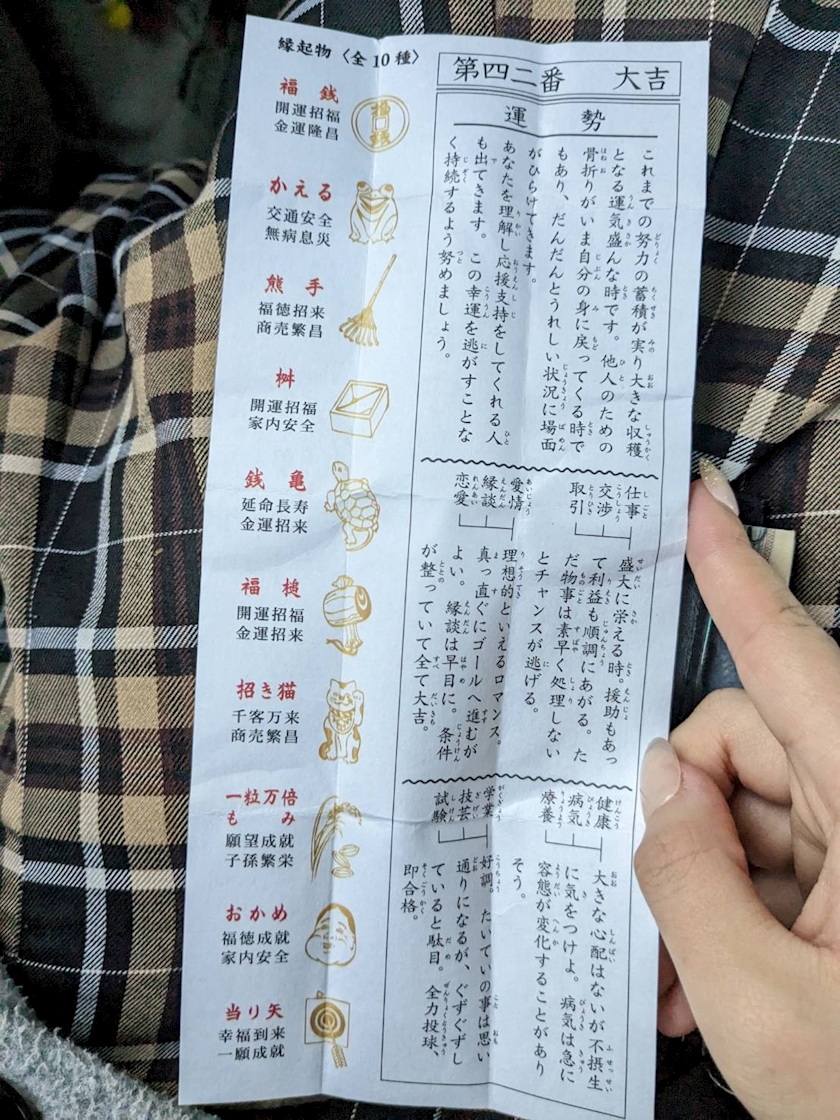 第四二番 大吉
運勢
これまでの努力の蓄積が実り大きな収穫
となる運気盛んな時です。他人のための
骨折りがいま自分の身に戻ってくる時で
もあり、だんだんとうれしい状況に場面
がひらけてきます。
あなたを理解し応援支持をしてくれる人
も出てきます。この幸運を逃がすことな
く持続するよう努めましょう。
仕事
交渉
取引
盛大に栄える時。援助もあっ
て利益も順調にあがる。た
だ物事は素早く処理しない
とチャンスが逃げる。
愛情
縁談
恋愛
理想的といえるロマンス。
真っ直ぐにゴールへ進むが
よい。縁談は早目に。条件
が整っていて全て大吉。
健康
病気
療養
大きな心配はないが不摂生
に気をつけよ。病気は急に
容態が変化することがあり
そう。
学業
技芸
試験
好調。たいていの事は思い
通りになるが、ぐずぐずし
ていると駄目。全力投球、
即合格。
縁起物〈全10種〉
福銭
開運招福
金運隆昌
かえる
交通安全
無病息災
熊手
福徳招来
商売繁昌
桝
開運招福
家内安全
銭亀
延命長寿
金運招来
福槌
開運招福
金運招来
招き猫
千客万来
商売繁昌
一粒万倍
もみ
願望成就
子孫繁栄
おかめ
福徳成就
家内安全
当り矢
幸福到来
一願成就